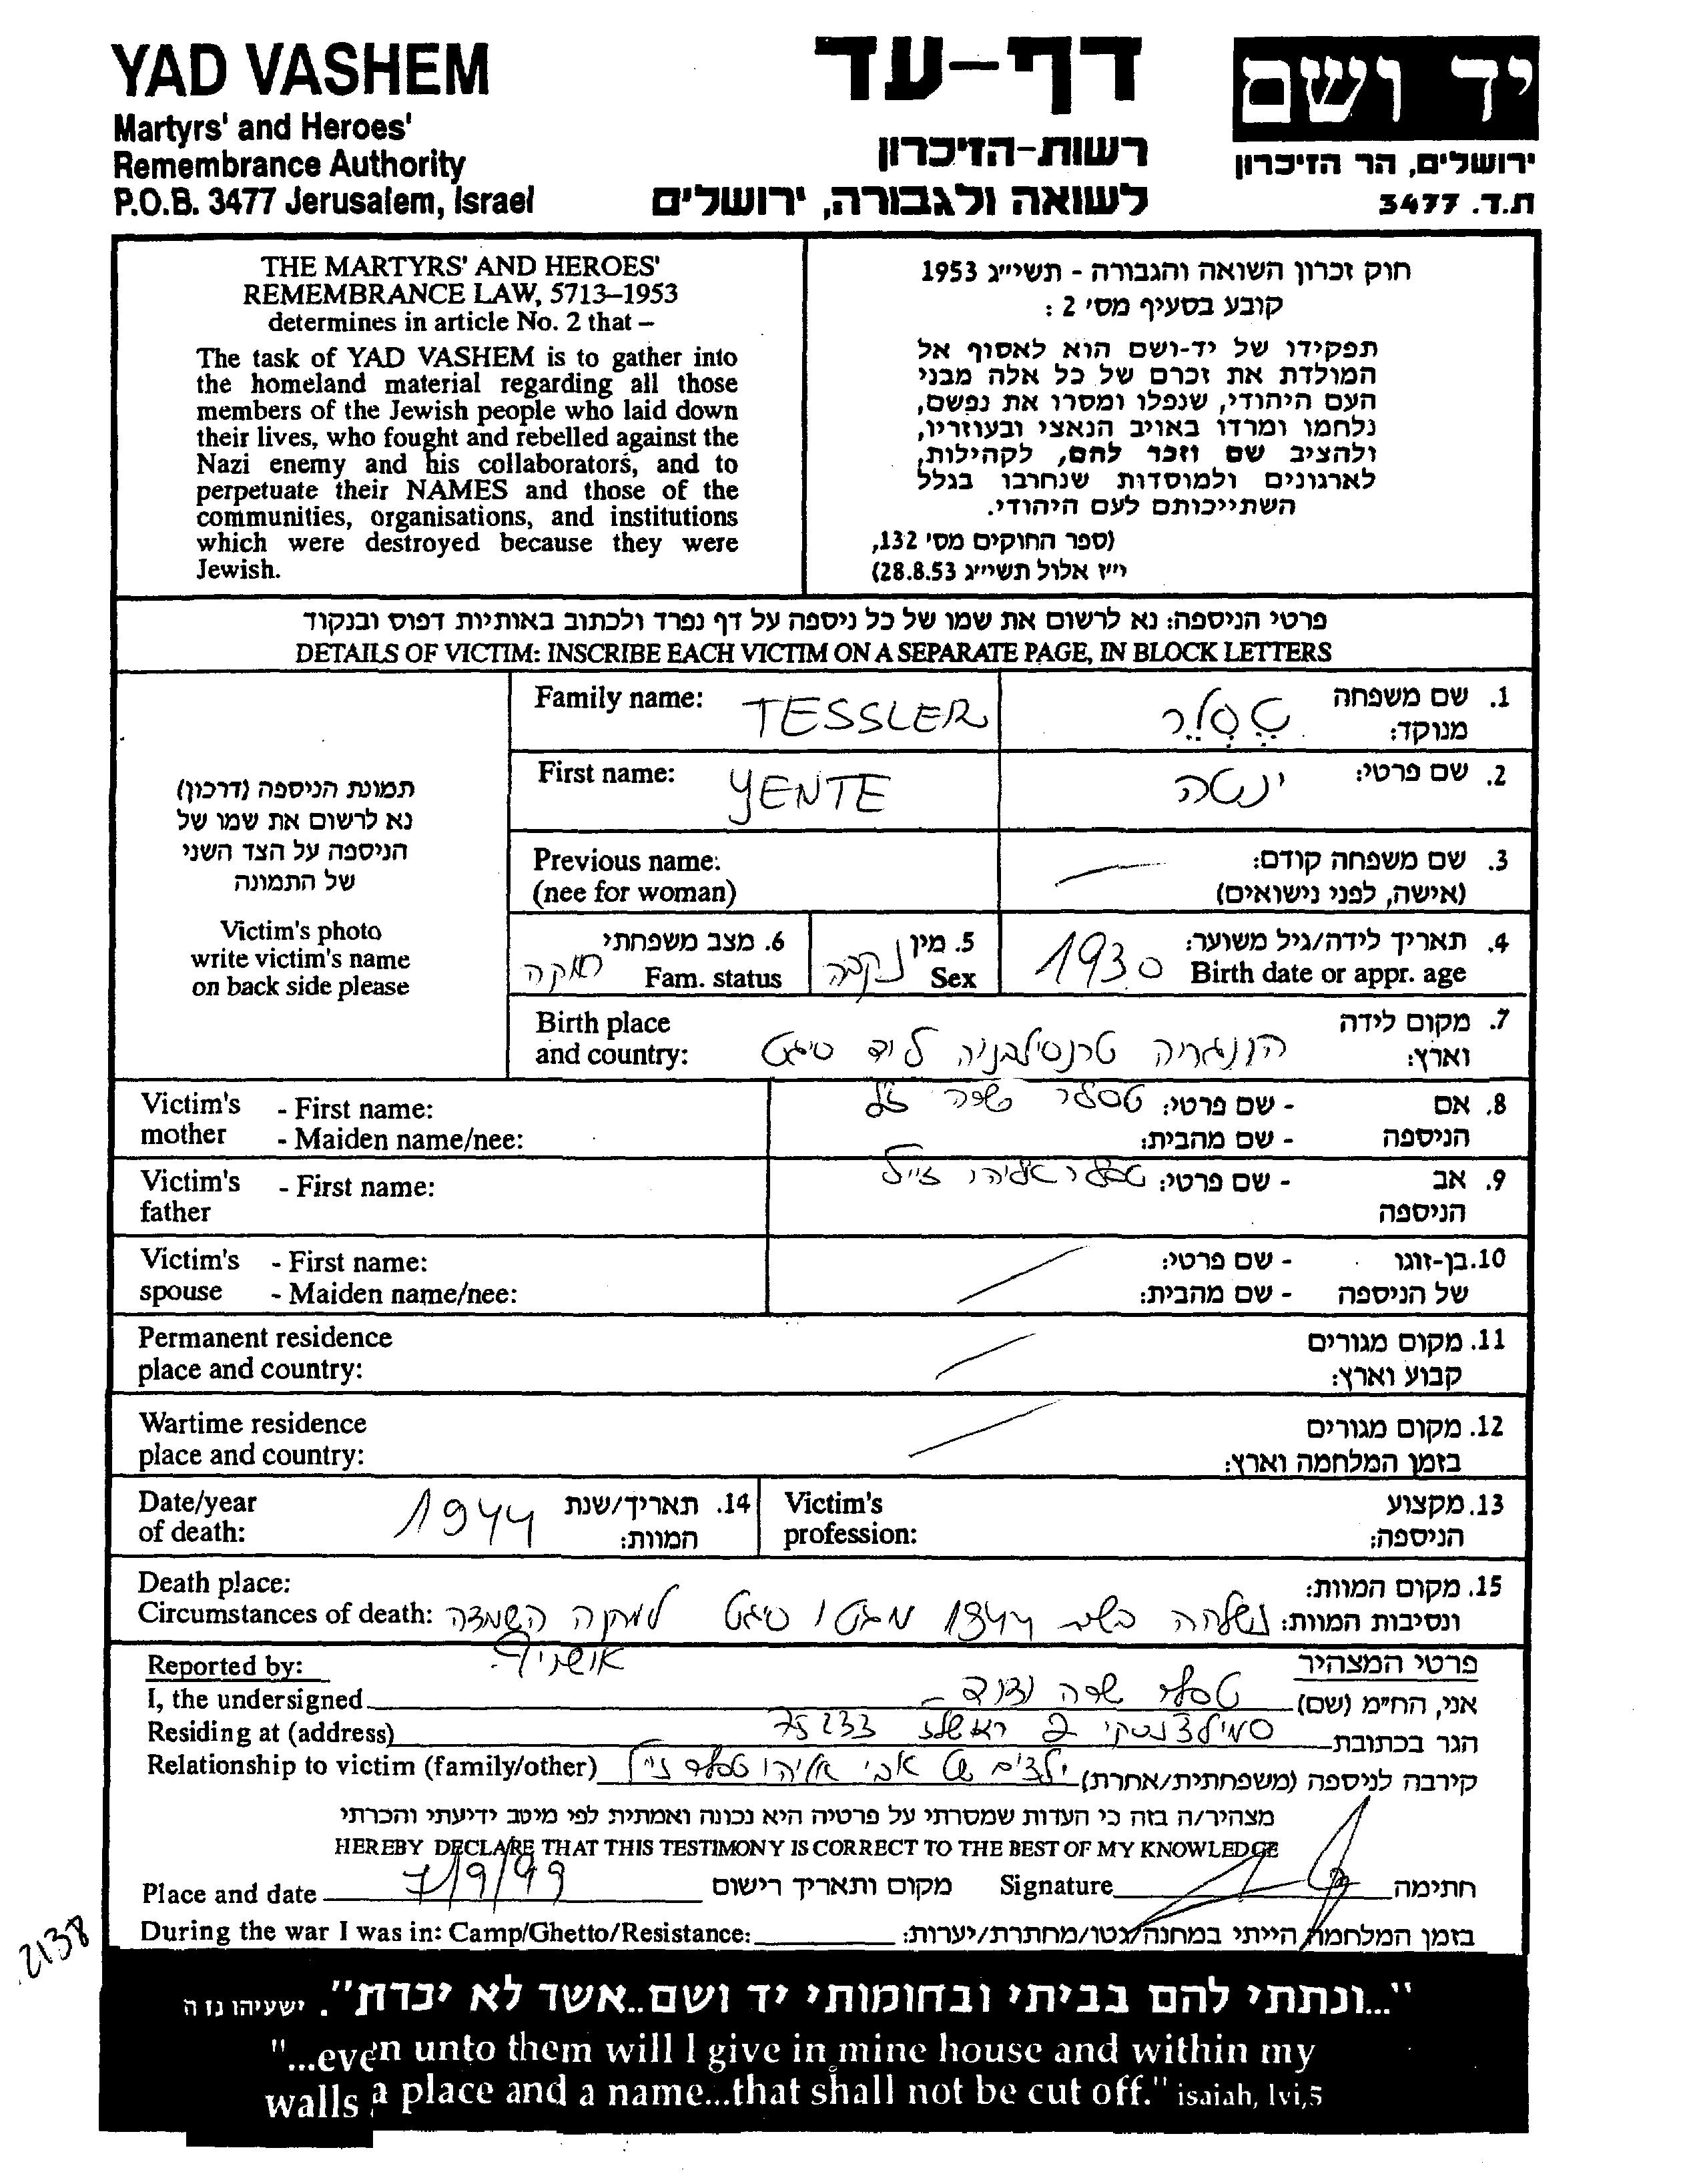 YAD VASHEM
Martyrs' and Heroes'
Remembrance Authority
P.O.B. 3477 Jerusalem, Israel
דף-עד
רשות-הזיכרון
לשואה ולגבורה, ירושלים
יד ושם
ירושלים, הר הזיכרון
ת.ד. 3477
THE MARTYRS' AND HEROES'
REMEMBRANCE LAW, 5713–1953
determines in article No. 2 that –
The task of YAD VASHEM is to gather into
the homeland material regarding all those
members of the Jewish people who laid down
their lives, who fought and rebelled against the
Nazi enemy and his collaborators, and to
perpetuate their NAMES and those of the
communities, organisations, and institutions
which were destroyed because they were
Jewish.
חוק זכרון השואה והגבורה - תשי״ג 1953
קובע בסעיף מס׳ 2 :
תפקידו של יד-ושם הוא לאסוף אל
המולדת את זכרם של כל אלה מבני
העם היהודי, שנפלו ומסרו את נפשם,
נלחמו ומרדו באויב הנאצי ובעוזריו,
ולהציב שם וזכר להם, לקהילות,
לארגונים ולמוסדות שנחרבו בגלל
השתייכותם לעם היהודי.
(ספר החוקים מס׳ 132,
י״ז אלול תשי״ג 28.8.53)
פרטי הניספה: נא לרשום את שמו של כל ניספה על דף נפרד ולכתוב באותיות דפוס ובנקוד
DETAILS OF VICTIM: INSCRIBE EACH VICTIM ON A SEPARATE PAGE, IN BLOCK LETTERS
תמונת הניספה (דרכון)
נא לרשום את שמו של
הניספה על הצד השני
של התמונה
Victim's photo
write victim's name
on back side please
Family name: TESSLER טסלר 1. שם משפחה
מנוקד:
First name: YENTE ינטה 2. שם פרטי:
Previous name: 3. שם משפחה קודם:
(nee for woman) (אישה, לפני נישואים)
6. מצב משפחתי 5. מין נקבה 4. תאריך לידה/גיל משוער:
Fam. status רווקה Sex 1930 Birth date or appr. age
Birth place 7. מקום לידה
and country: הונגריה טרנסילבניה ליד סיגט וארץ:
Victim's - First name: טסלר שרה ז"ל - שם פרטי: 8. אם
mother - Maiden name/nee: - שם מהבית: הניספה
Victim's - First name: טסלר אליהו ז"ל - שם פרטי: 9. אב
father הניספה
Victim's - First name: - שם פרטי: 10. בן-זוגו
spouse - Maiden name/nee: - שם מהבית: של הניספה
Permanent residence 11. מקום מגורים
place and country: קבוע וארץ:
Wartime residence 12. מקום מגורים
place and country: בזמן המלחמה וארץ:
Date/year 1944 14. תאריך/שנת Victim's 13. מקצוע
of death: המוות: profession: הניספה:
Death place: 15. מקום המוות:
Circumstances of death: ונסיבות המוות: נשלחה בשנת 1944 מגטו סיגט למחנה השמדה
אושוויץ.
Reported by: פרטי המצהיר
I, the undersigned אני, הח״מ (שם) טסלר שרה ודוד
Residing at (address) הגר בכתובת סמילצנסקי 2 ראשלצ 75233
Relationship to victim (family/other) קירבה לניספה (משפחתית/אחרת) ילדים של אבי אליהו טסלר ז"ל
מצהיר/ה בזה כי העדות שמסרתי על פרטיה היא נכונה ואמתית לפי מיטב ידיעתי והכרתי
HEREBY DECLARE THAT THIS TESTIMONY IS CORRECT TO THE BEST OF MY KNOWLEDGE
Place and date 7/9/99 מקום ותאריך רישום Signature חתימה
During the war I was in: Camp/Ghetto/Resistance: בזמן המלחמה הייתי במחנה/גטו/מחתרת/יערות:
2138
"...ונתתי להם בביתי ובחומותי יד ושם..אשר לא יכרת". ישעיהו נז ה
"...even unto them will I give in mine house and within my
walls a place and a name...that shall not be cut off." isaiah, lvi,5